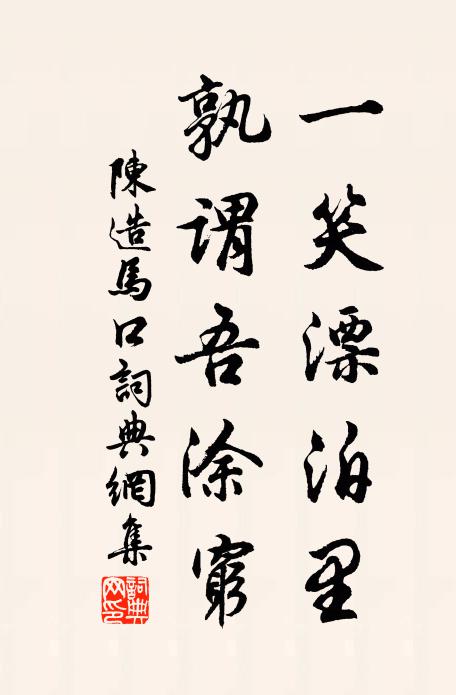 一笑漂泊里
孰谓吾涂窮
陳造馬口詞典網集
詞典網印